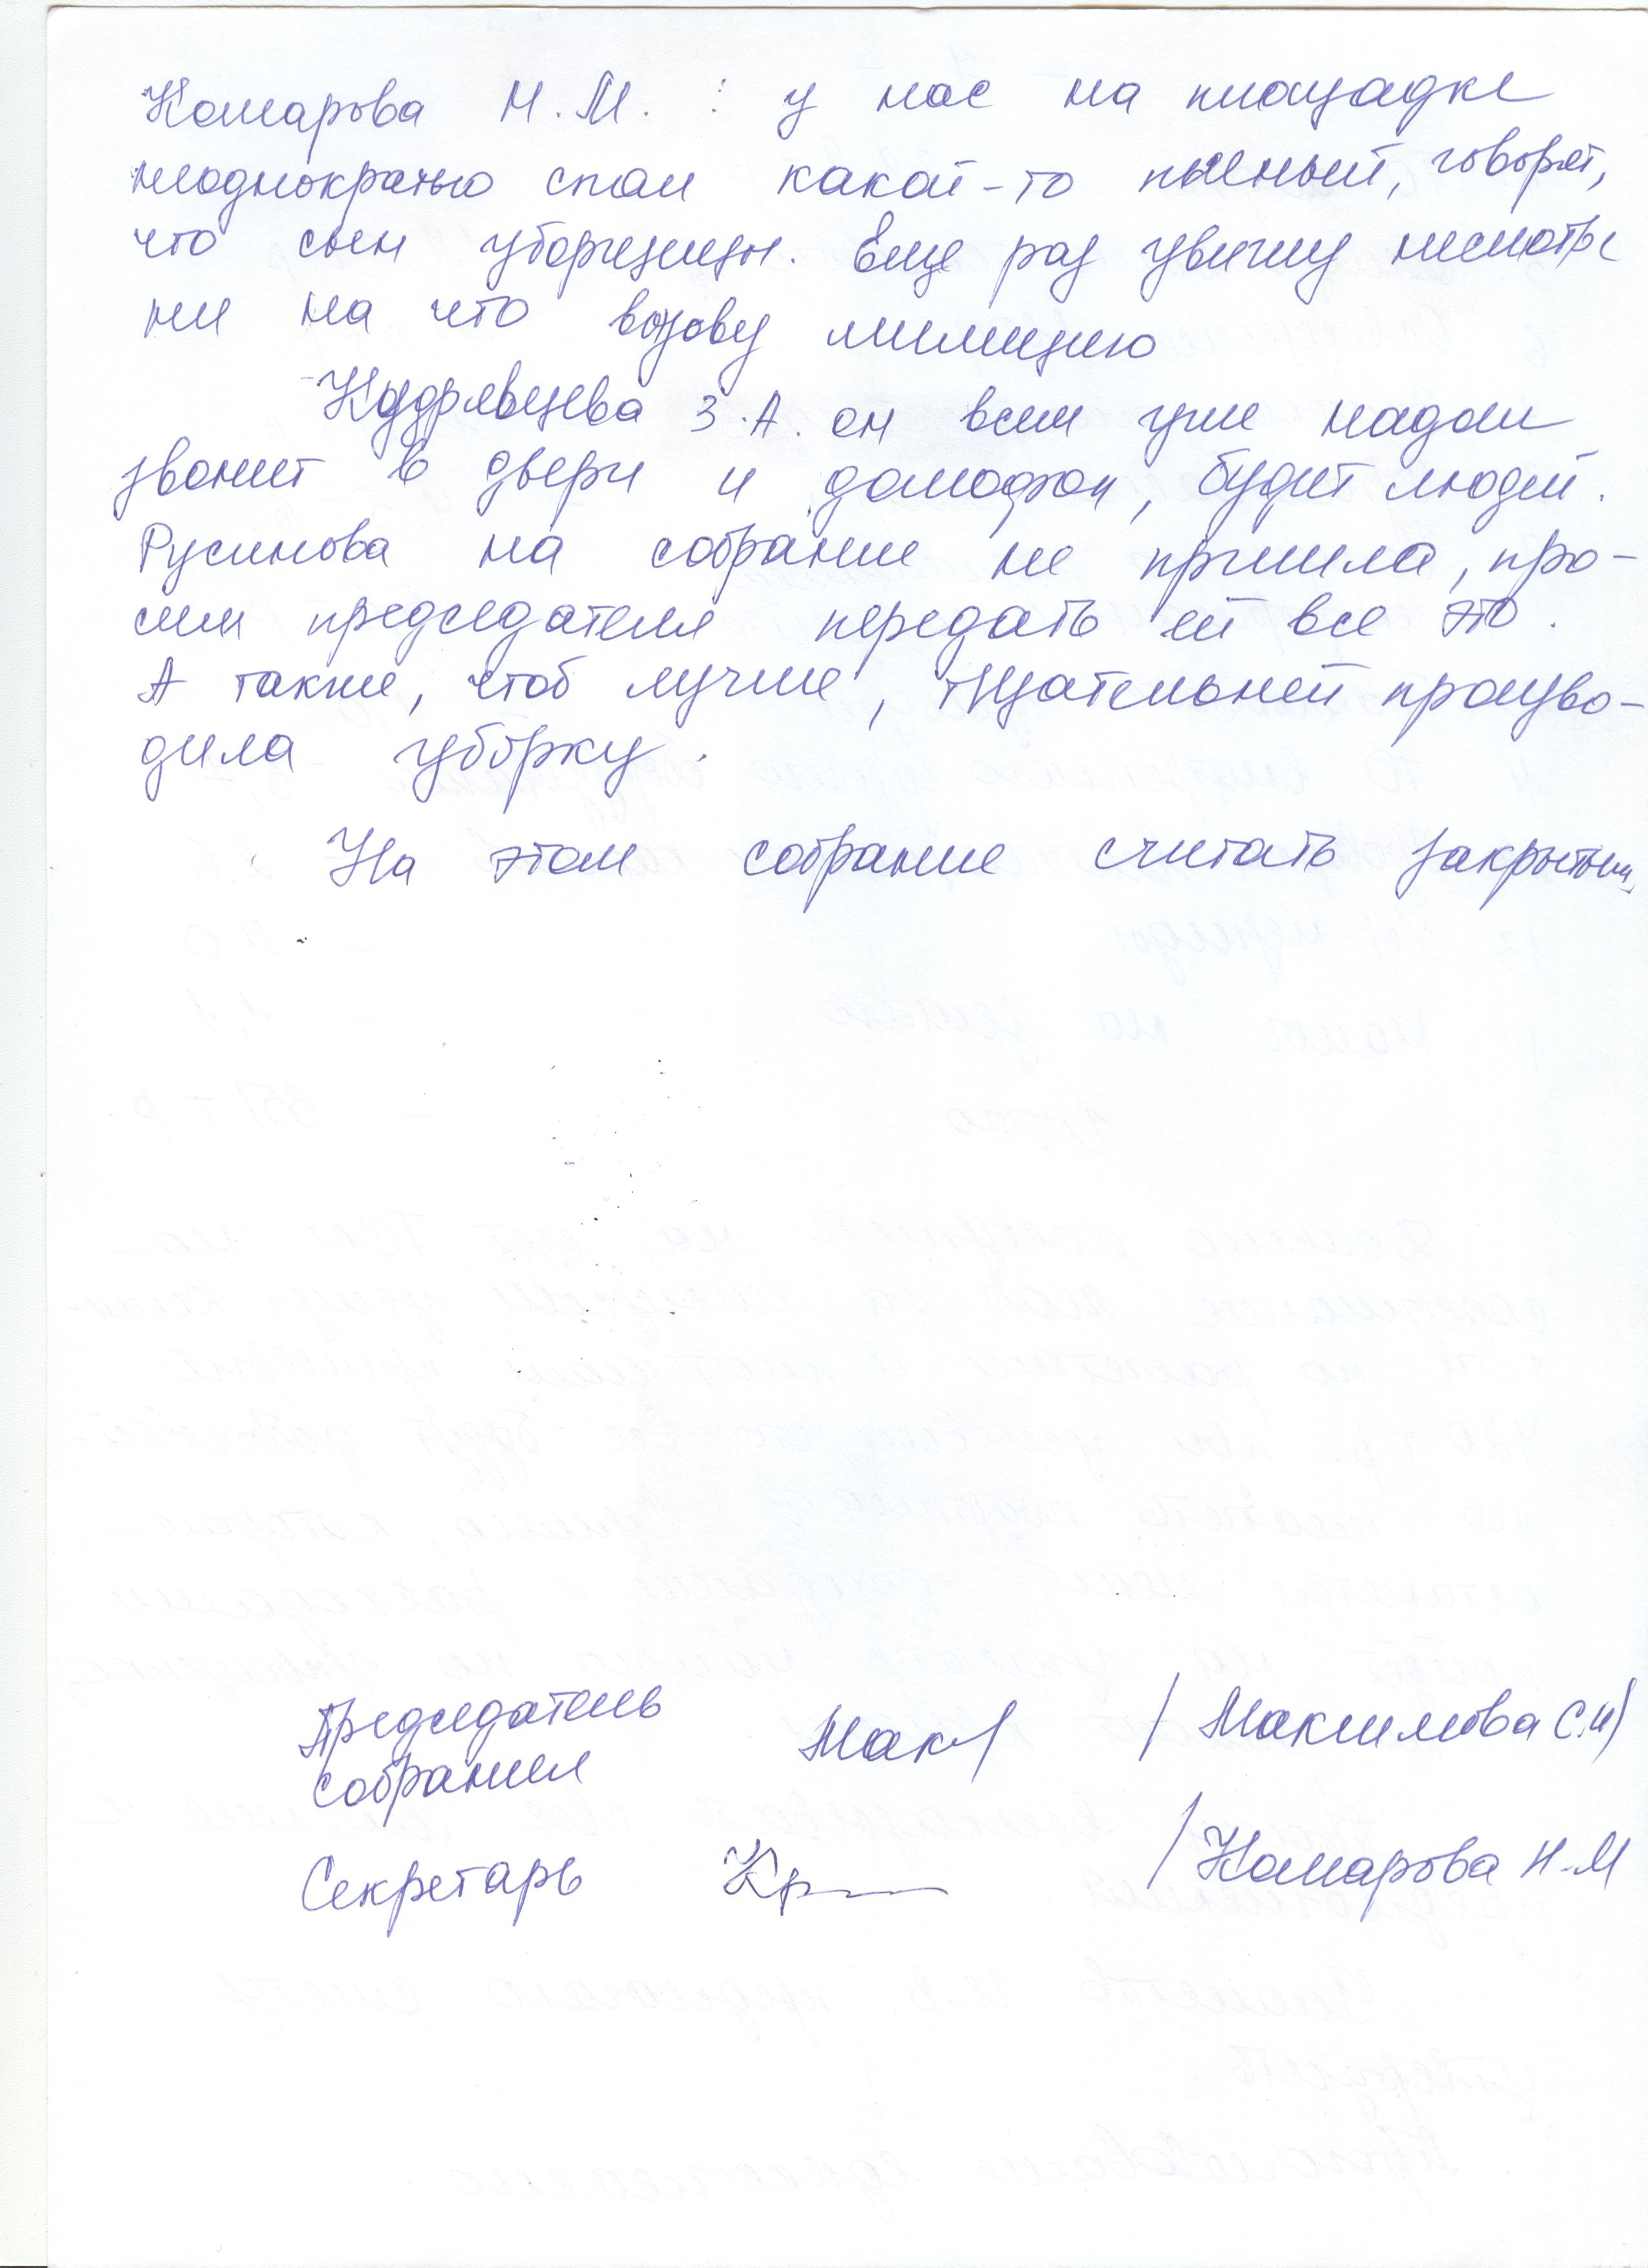 Комарова Н.М. : у нас на площадке
неоднократно спал какой-то пьяный, говорят,
что сын уборщицы. Еще раз увижу несмотря
ни на что вызову милицию
Кудрявцева З.А. он всем уже надоел
звонит в двери и домофон, будит людей.
Русинова на собрание не пришла, про-
сим председателя передать ей все это.
А также, чтоб лучше, тщательней произво-
дила уборку.
На этом собрание считать закрытым.
Председатель
собрания Мак /Максимова С.И/
Секретарь /Комарова Н.М